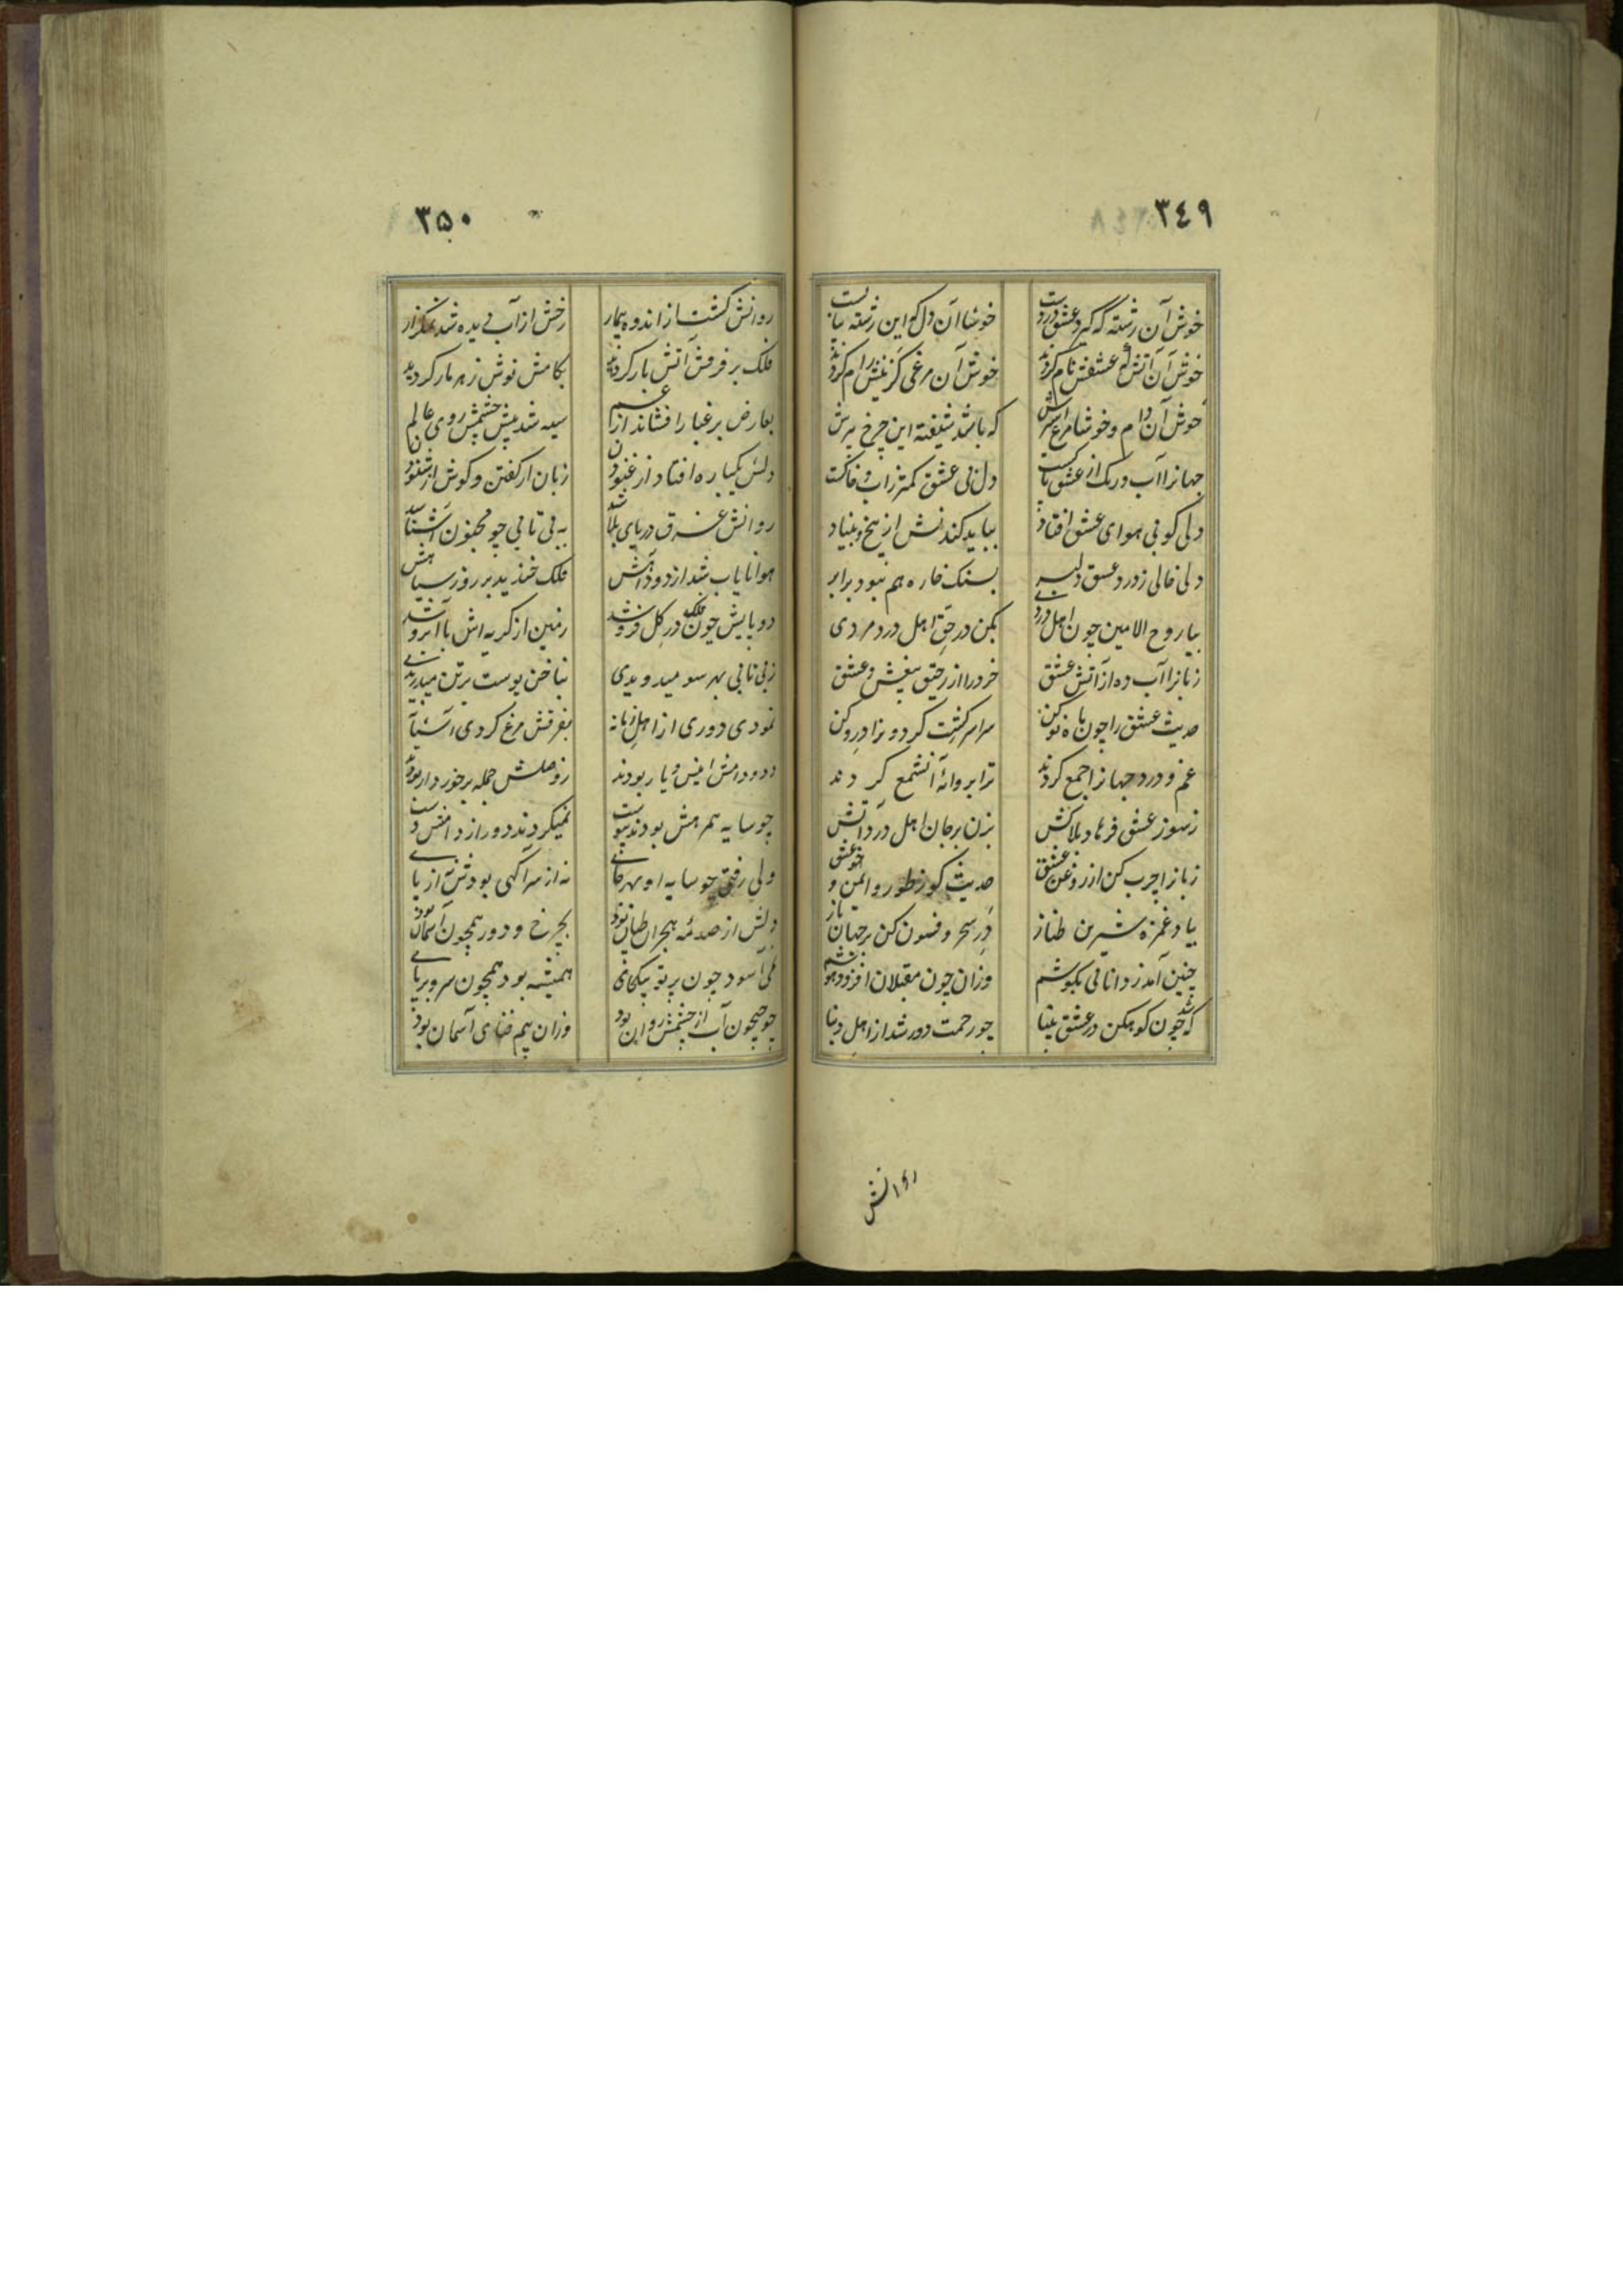 ۳۴۹
خوش آن رشته که گیرد عشق در دست خوشا آن دل کو این رشته پا بست
خوش آن آتش که عشقش نام کردند خوش آن مرغی کزینش رام کردند
خوش آن دام و خوشا مرغ اسیرش که باشد شیفته این چرخ پیرش
جهانرا آب و رنک از عشق پاکست دل بی عشق کمتر زاب و خاکست
دلی کو بی هوای عشق افتاد بباید کندنش از بیخ و بنیاد
دلی خالی ز درد عشق دلبر بسنک خاره هم نبود برابر
بیا روح الامین چون اهل دردی بکن در حق اهل درد مردی
زبانرا آب ده از آتش عشق خرد را از رحیق بیغش عشق
حدیث عشق را چون ماه نو کن سراسر کشت کردونرا درو کن
غم و درد جهانرا جمع کردند ترا پروانهٔ آنشمع کردند
ز سوز عشق فرهاد بلاکش بزن بر جان اهل درد آتش
زبانرا چرب کن از روغن عشق حدیث کو ز طور و ایمن و عشق
بیاد غمزه شیرین طناز در سحر و فسون کن بر جهان باز
چنین آمد ز دانائی بکوشم وزان چون مقبلان افزود هوشم
که چون کوهکن در عشق یکتا چو رحمت دور شد از اهل دنیا
روانش
۳۵۰
روانش کشت از اندوه بیمار رخش از آب دیده شد
فلک بر فرقش آتش بار کردید بکامش نوش زهر مار کردید
بعارض بر غبار افشاند از غم سیه شد پیش چشمش روی عالم
دلش یکباره افتاد از غنودن زبان از کفتن و کوش از شنودن
روانش غرق دریای بلا شد به بی تابی چو مجنون آشنا شد
هوا نایاب شد از دود آهش فلک خندید بر روز سیاهش
دو پایش چون فلک در کل فرو شد زمین از کریه اش با آبرو شد
ز بی تابی بهر سو میدویدی بناخن پوست بر تن میدریدی
نمودی دوری از اهل زمانه بفرقش مرغ کردی آشیانه
دد و دامش انیس و یار بودند ز وصلش جمله برخوردار بودند
چو سایه همرهش بودند پیوست نمیکردند دور از دامنش دست
ولی رفتی چو سایه او بهر جای نه از سر آکهی بودش نه از پای
دلش از صدمهٔ هجران طپان بود بچرخ و دور همچون آسمان بود
نمی آسود چون پرتو بیکجای همیشه بود همچون سرو بر پای
چو جیحون آب از چشمش روان بود وزان بیم فنای آسمان بود